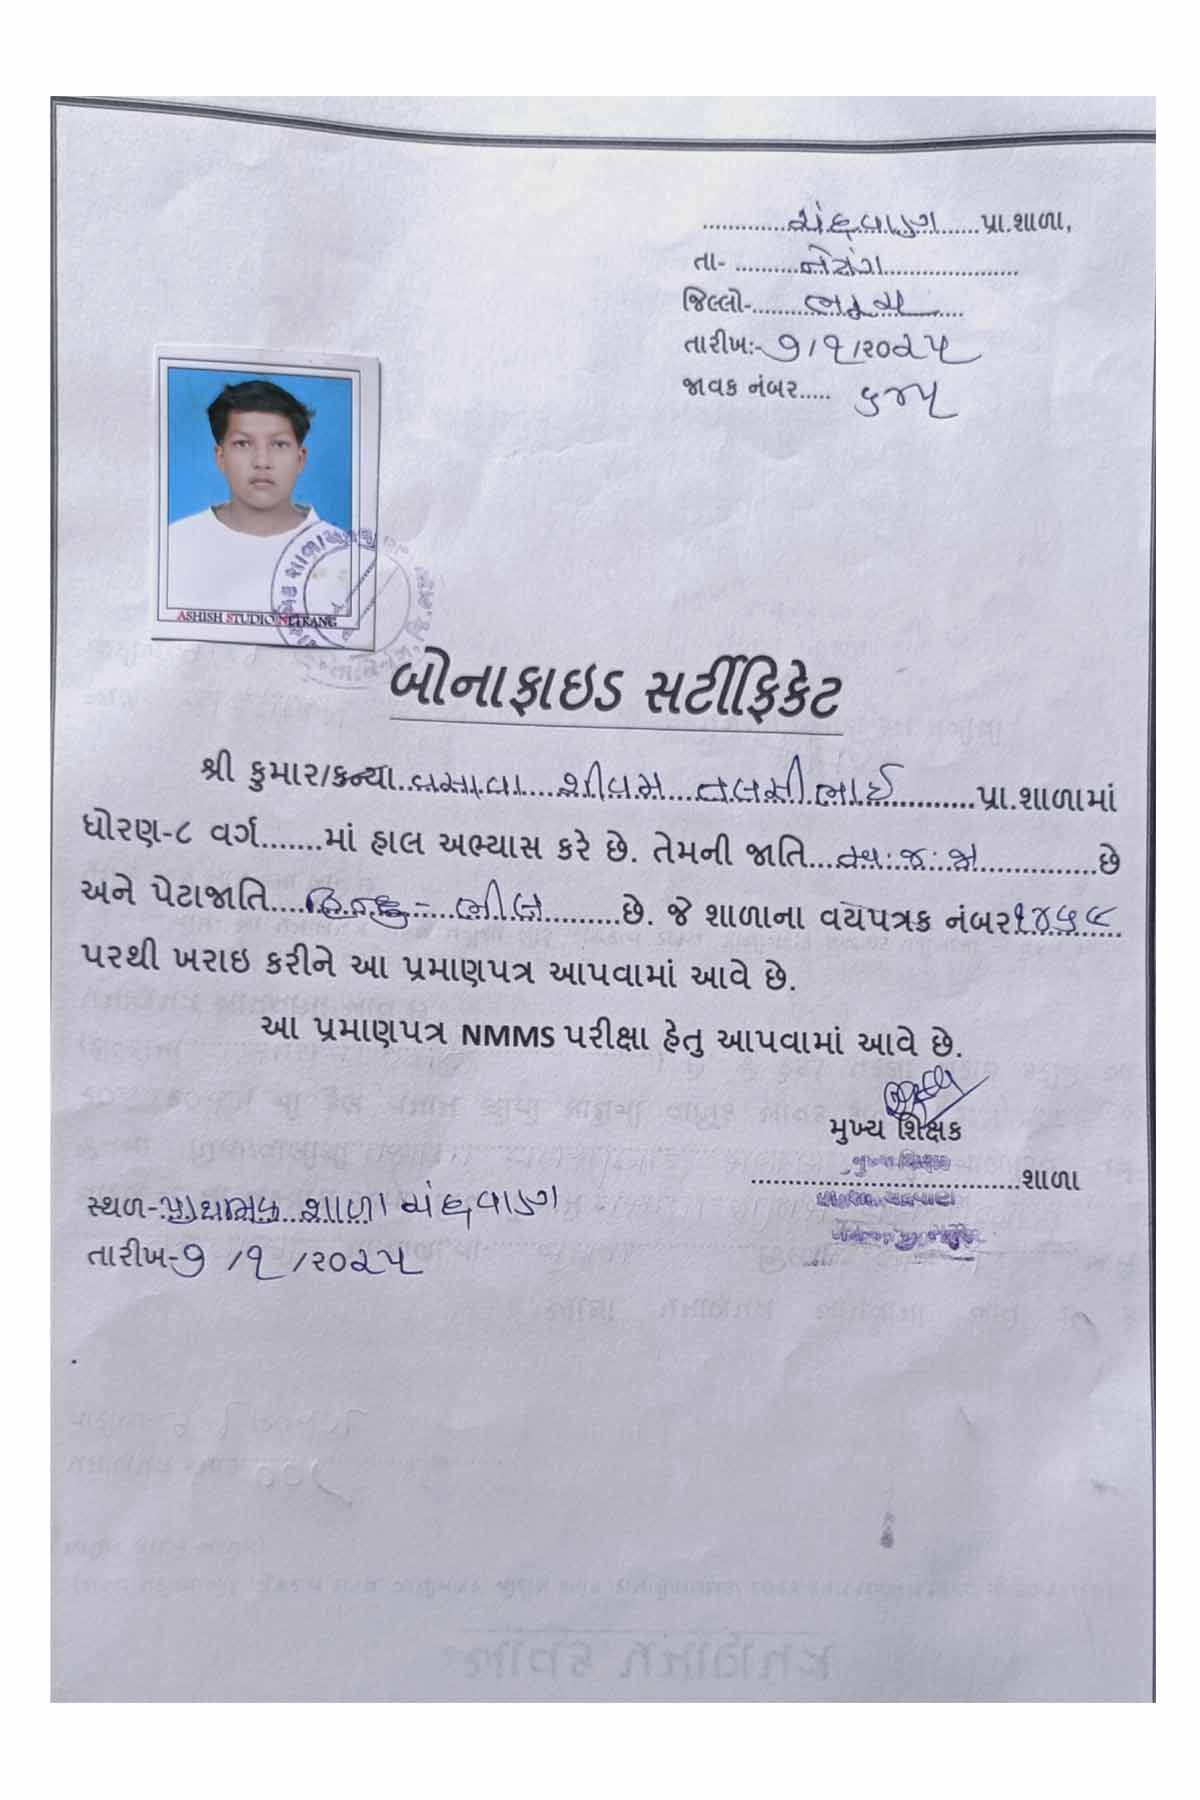 ચંદ્રવાણ પ્રા.શાળા,
તા- નેત્રંગ
જિલ્લો- ભરૂચ
તારીખ:- ૭/૧/૨૦૨૫
જાવક નંબર..... ૬૪૫
ASHISH STUDIO NETRANG
બોનાફાઇડ સર્ટીફિકેટ
શ્રી કુમાર/કન્યા વસાવા શીવમ તલસીભાઈ પ્રા.શાળામાં
ધોરણ-૮ વર્ગ.......માં હાલ અભ્યાસ કરે છે. તેમની જાતિ અ.જ.જા છે
અને પેટાજાતિ હિન્દુ - ભીલ છે. જે શાળાના વયપત્રક નંબર ૧૪૫૮
પરથી ખરાઇ કરીને આ પ્રમાણપત્ર આપવામાં આવે છે.
આ પ્રમાણપત્ર NMMS પરીક્ષા હેતુ આપવામાં આવે છે.
મુખ્ય શિક્ષક
શાળા
સ્થળ- પ્રાથમિક શાળા ચંદ્રવાણ
તારીખ-૭/૧/૨૦૨૫